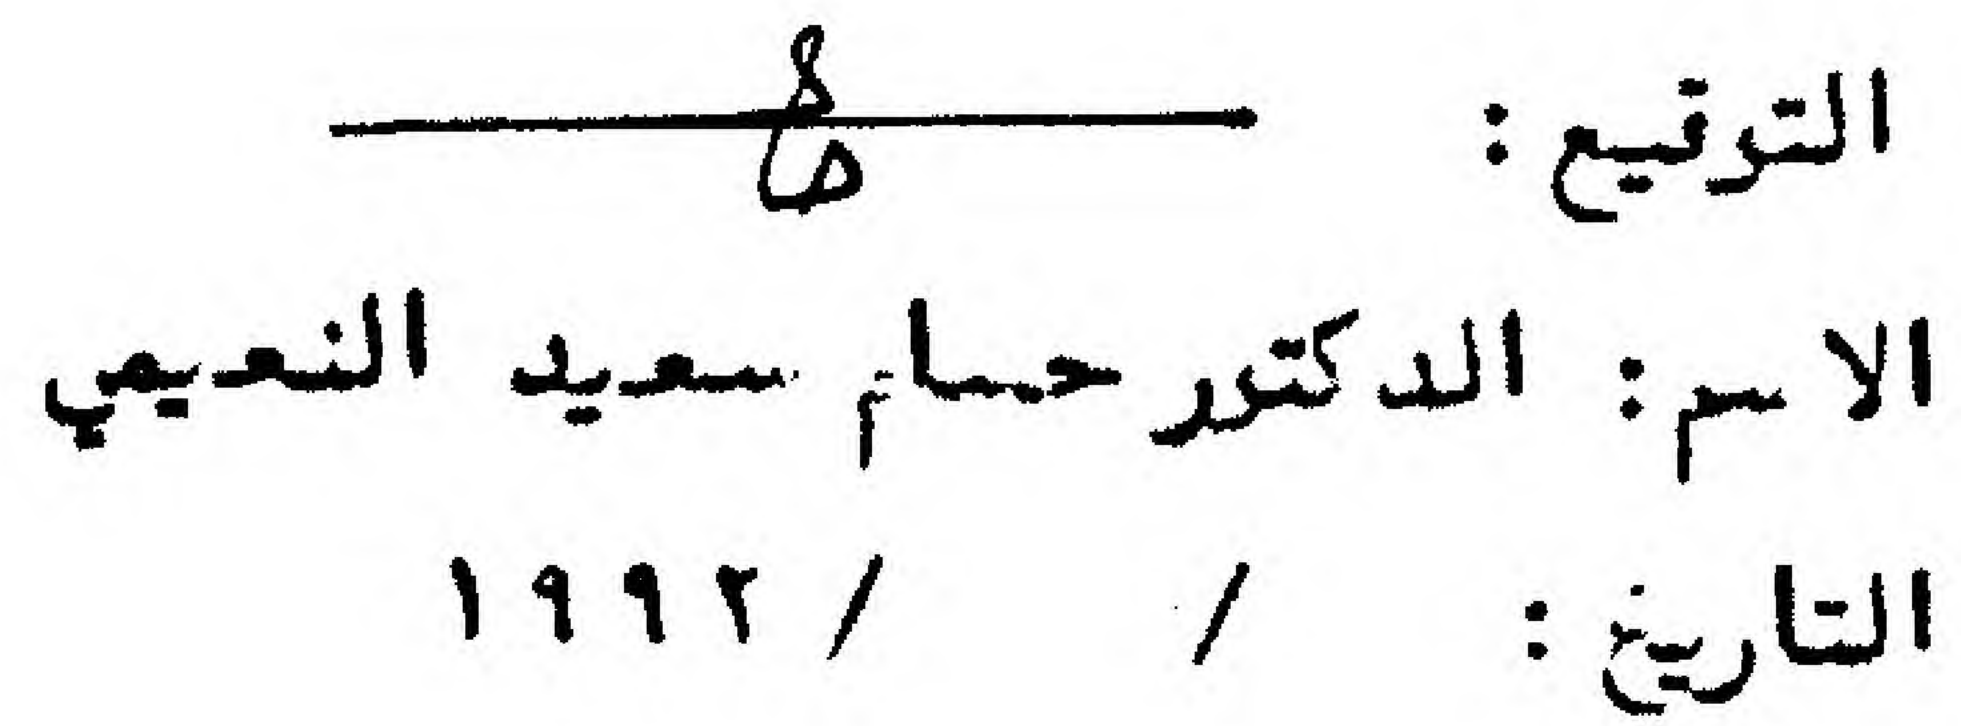 التوقيع :
الاسم : الدكتور حسام سعيد النعيمي
التاريخ : / / ١٩٩٢